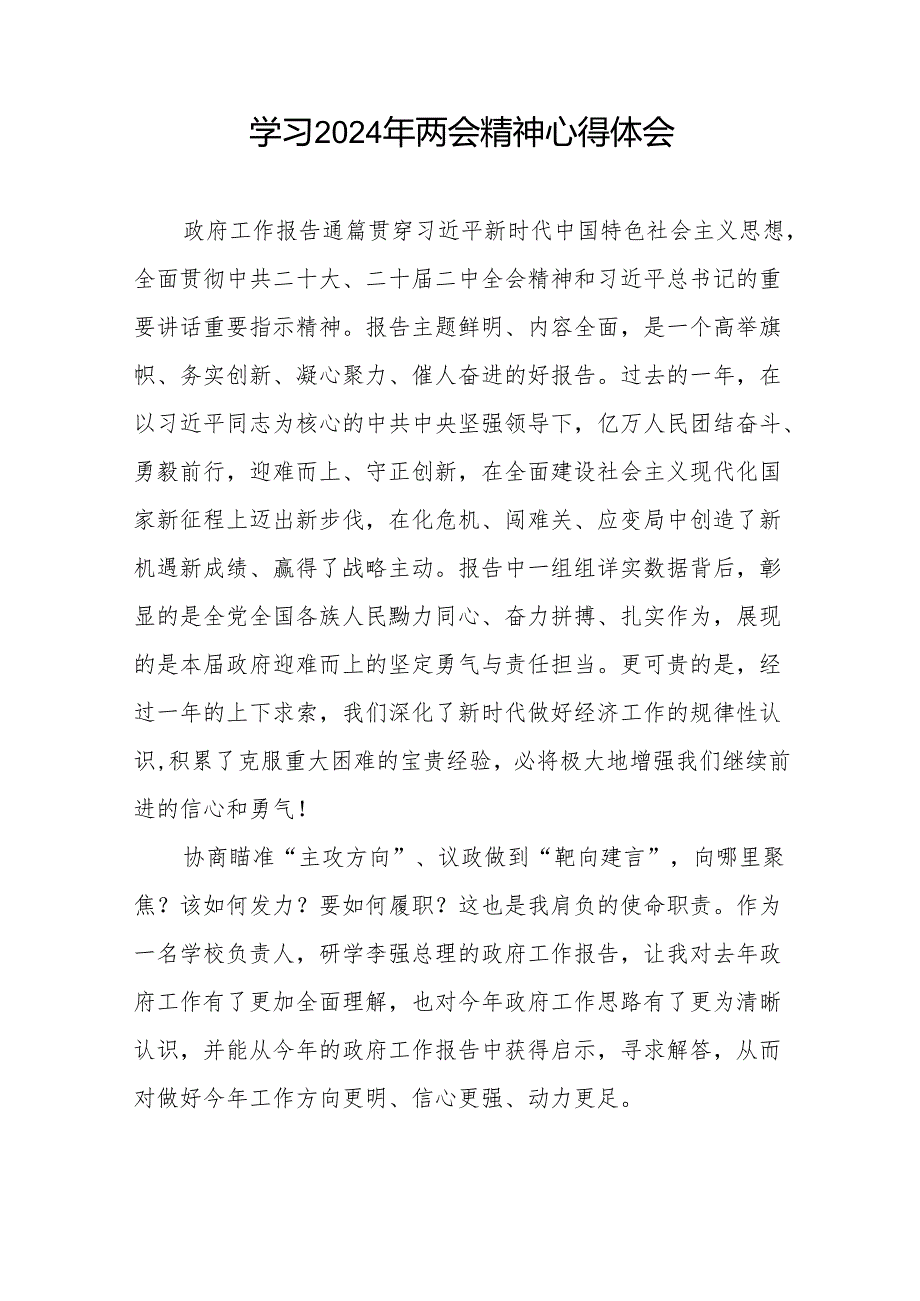 学习2024年两会精神心得体会
政府工作报告通篇贯穿习近平新时代中国特色社会主义思想，
全面贯彻中共二十大、二十届二中全会精神和习近平总书记的重
要讲话重要指示精神。报告主题鲜明、内容全面，是一个高举旗
帜、务实创新、凝心聚力、催人奋进的好报告。过去的一年，在
以习近平同志为核心的中共中央坚强领导下，亿万人民团结奋斗、
勇毅前行，迎难而上、守正创新，在全面建设社会主义现代化国
家新征程上迈出新步伐，在化危机、闯难关、应变局中创造了新
机遇新成绩、赢得了战略主动。报告中一组组详实数据背后，彰
显的是全党全国各族人民黝力同心、奋力拼搏、扎实作为，展现
的是本届政府迎难而上的坚定勇气与责任担当。更可贵的是，经
过一年的上下求索，我们深化了新时代做好经济工作的规律性认
识,积累了克服重大困难的宝贵经验，必将极大地增强我们继续前
进的信心和勇气！
协商瞄准“主攻方向”、议政做到“靶向建言”，向哪里聚
焦？该如何发力？要如何履职？这也是我肩负的使命职责。作为
一名学校负责人，研学李强总理的政府工作报告，让我对去年政
府工作有了更加全面理解，也对今年政府工作思路有了更为清晰
认识，并能从今年的政府工作报告中获得启示，寻求解答，从而
对做好今年工作方向更明、信心更强、动力更足。